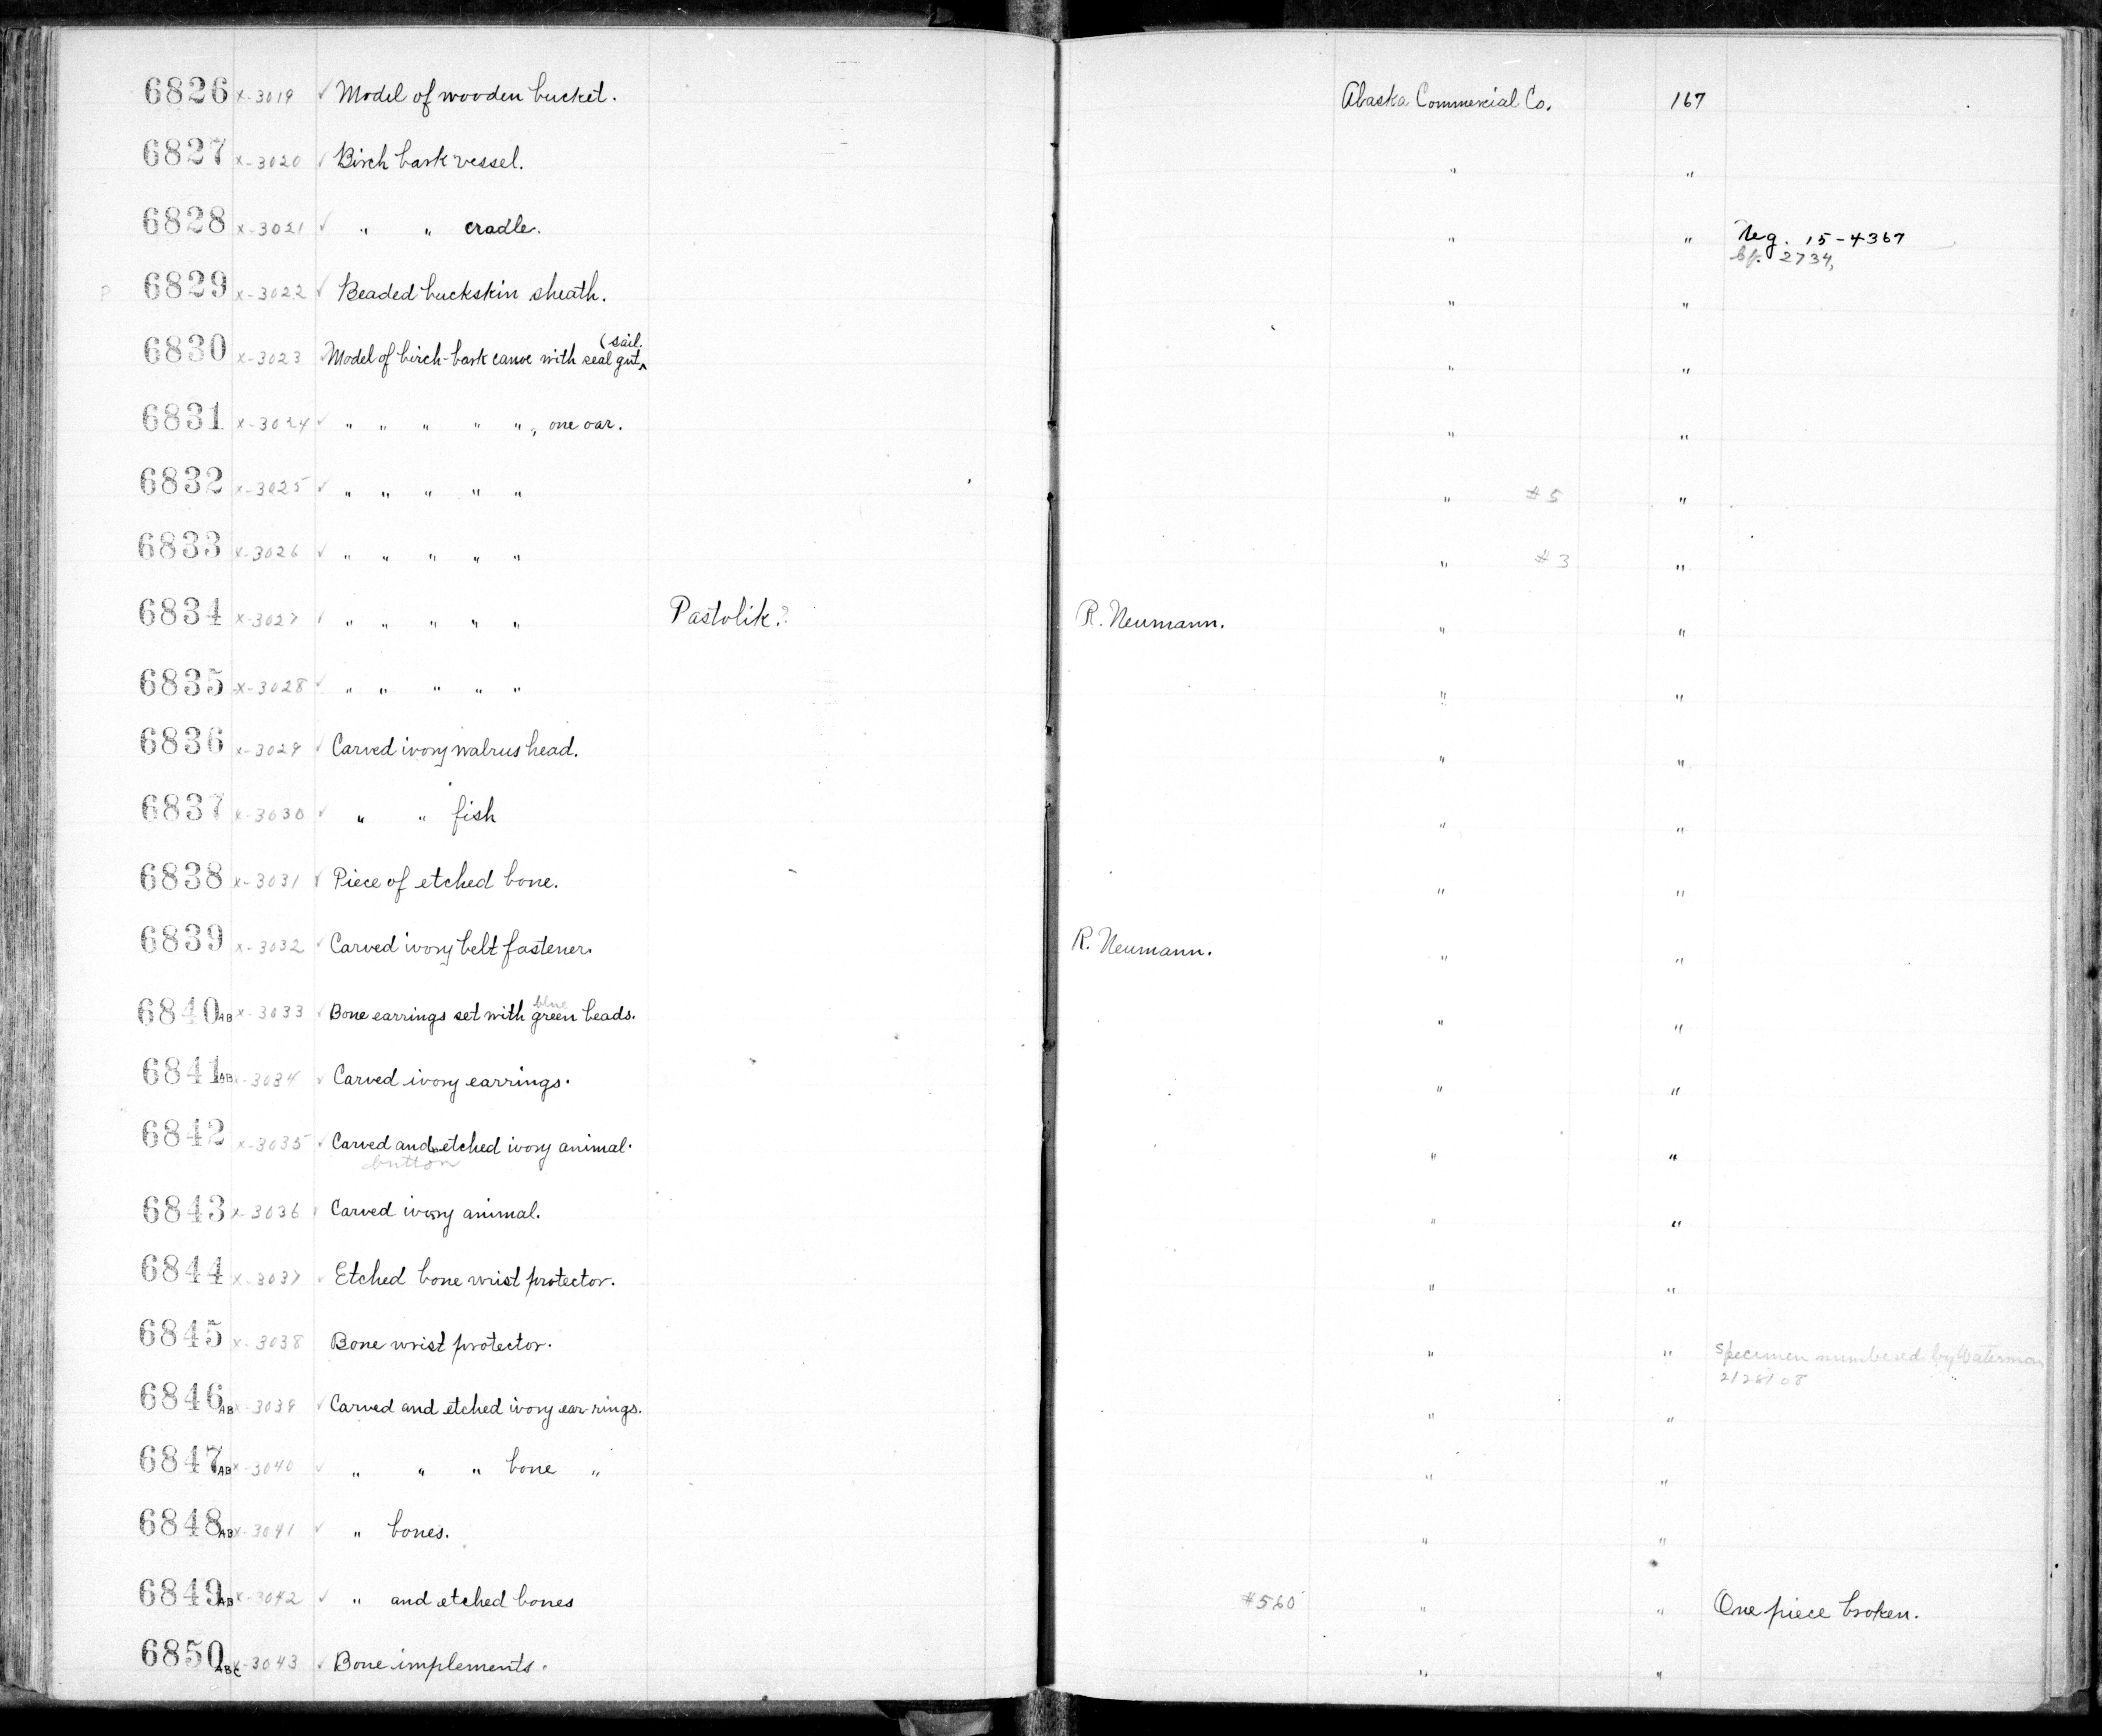 6826 x-3019 ✓ Model of wooden bucket. Alaska Commercial Co. 167
6827 x-3020 ✓ Birch bark vessel. " "
6828 x-3021 ✓ " " cradle. " " Neg. 15-4367
cf. 2734,
P 6829 x-3022 ✓ Beaded buckskin sheath. " "
(sail.
6830 x-3023 Model of birch-bark canoe with seal gut^ " "
6831 x-3024 ✓ " " " " ", one oar. " "
6832 x-3025 ✓ " " " " " " #5 "
6833 x-3026 ✓ " " " " " " #3 "
6834 x-3027 ✓ " " " " " Pastolik? R. Neumann. " "
6835 x-3028 ✓ " " " " " " "
6836 x-3029 ✓ Carved ivory walrus head. " "
6837 x-3030 ✓ " " fish " "
6838 x-3031 ✓ Piece of etched bone. " "
6839 x-3032 ✓ Carved ivory belt fastener. R. Neumann. " "
blue
6840AB x-3033 ✓ Bone earrings set with green beads. " "
6841AB x-3034 ✓ Carved ivory earrings. " "
6842 x-3035 ✓ Carved and etched ivory animal. " "
button
6843 x-3036 ✓ Carved ivory animal. " "
6844 x-3037 ✓ Etched bone wrist protector. " "
6845 x-3038 Bone wrist protector. " " Specimen numbered by Waterman
2/28/08
6846AB x-3039 ✓ Carved and etched ivory ear-rings. " "
6847AB x-3040 ✓ " " " bone " " "
6848AB x-3041 ✓ " bones. " "
6849AB x-3042 ✓ " and etched bones #560 " " One piece broken.
6850ABC x-3043 ✓ Bone implements. " "